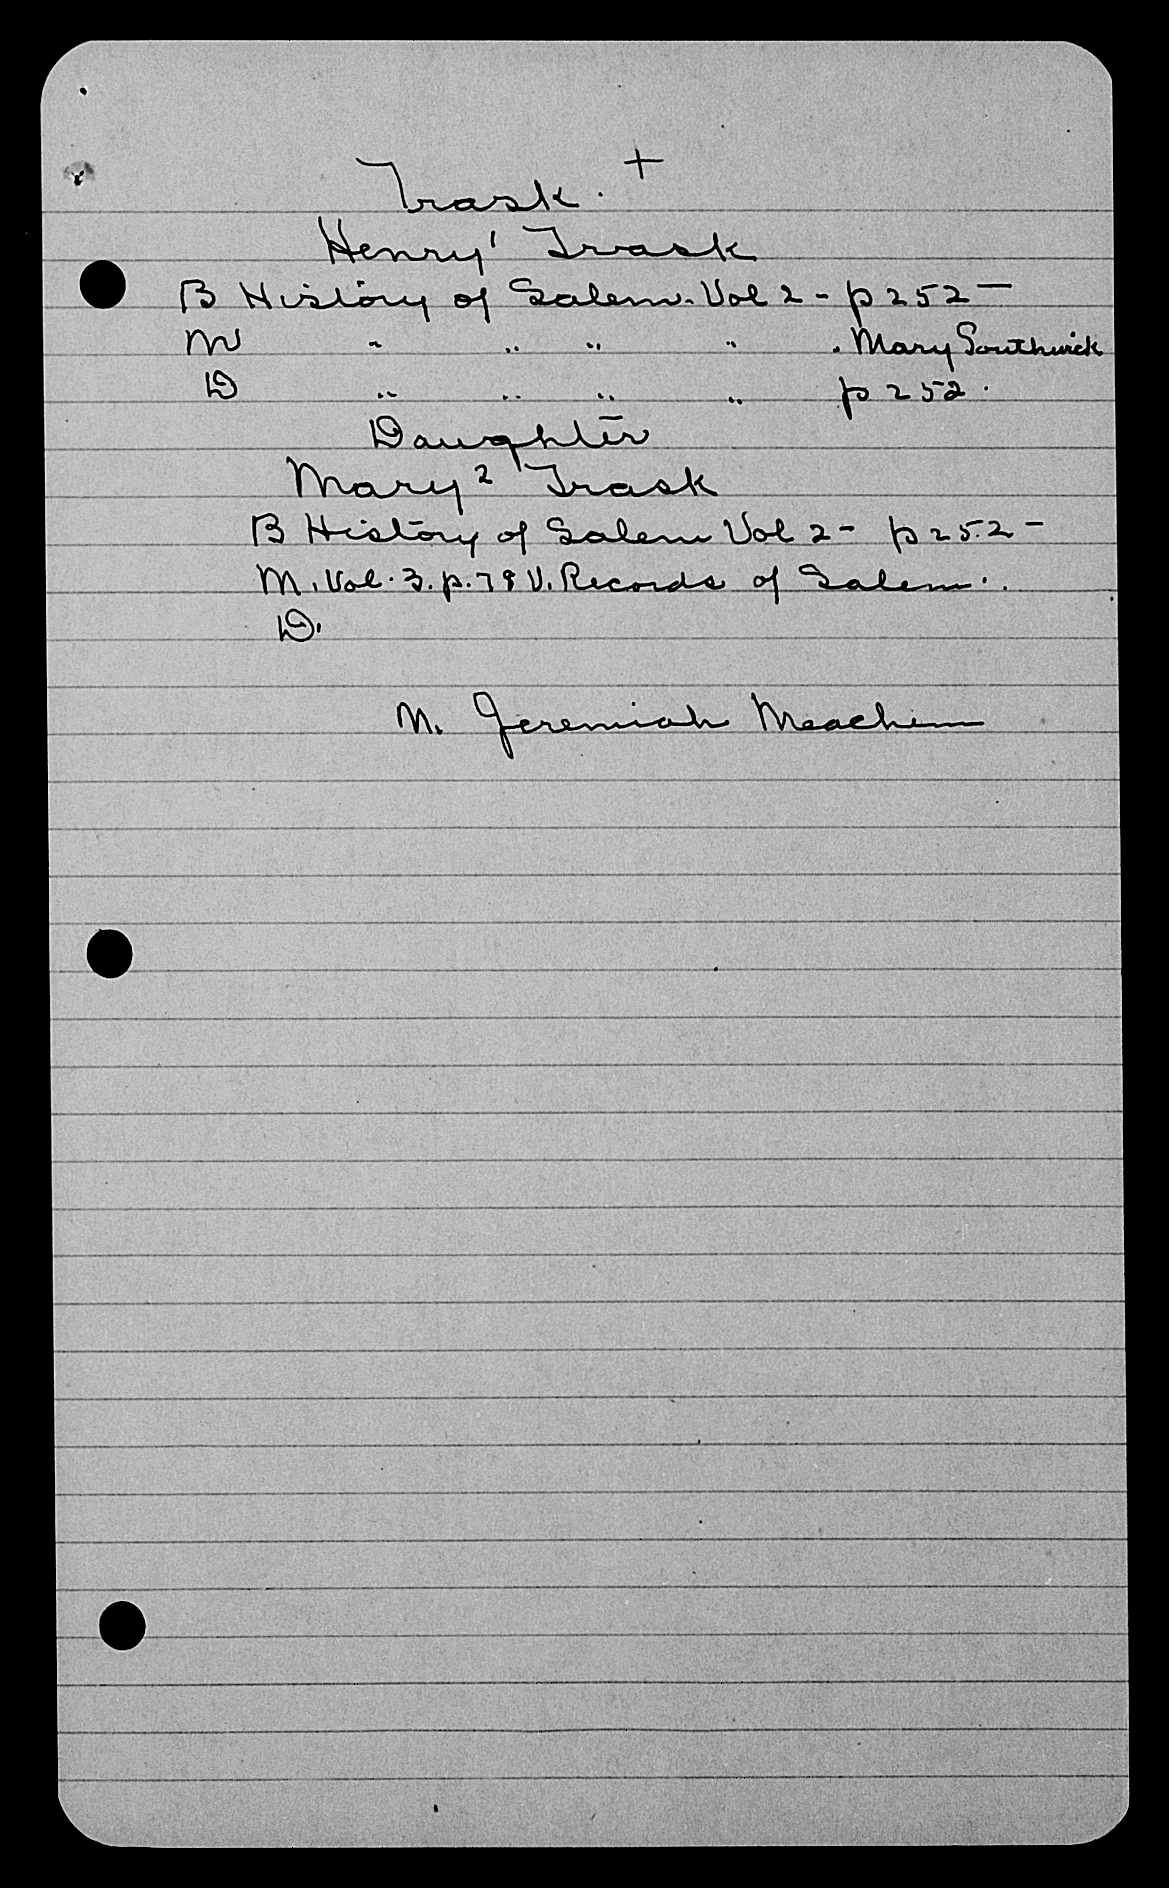 Trask. +
Henry¹ Trask
B History of Salem. Vol 2 - p 252 -
M " " " " . Mary Southwick
D " " " " p 252.
Daughter
Mary² Trask
B History of Salem Vol 2 - p 252 -
M. Vol. 3. p. 78 V. Records of Salem.
D.
M. Jeremiah Meachem